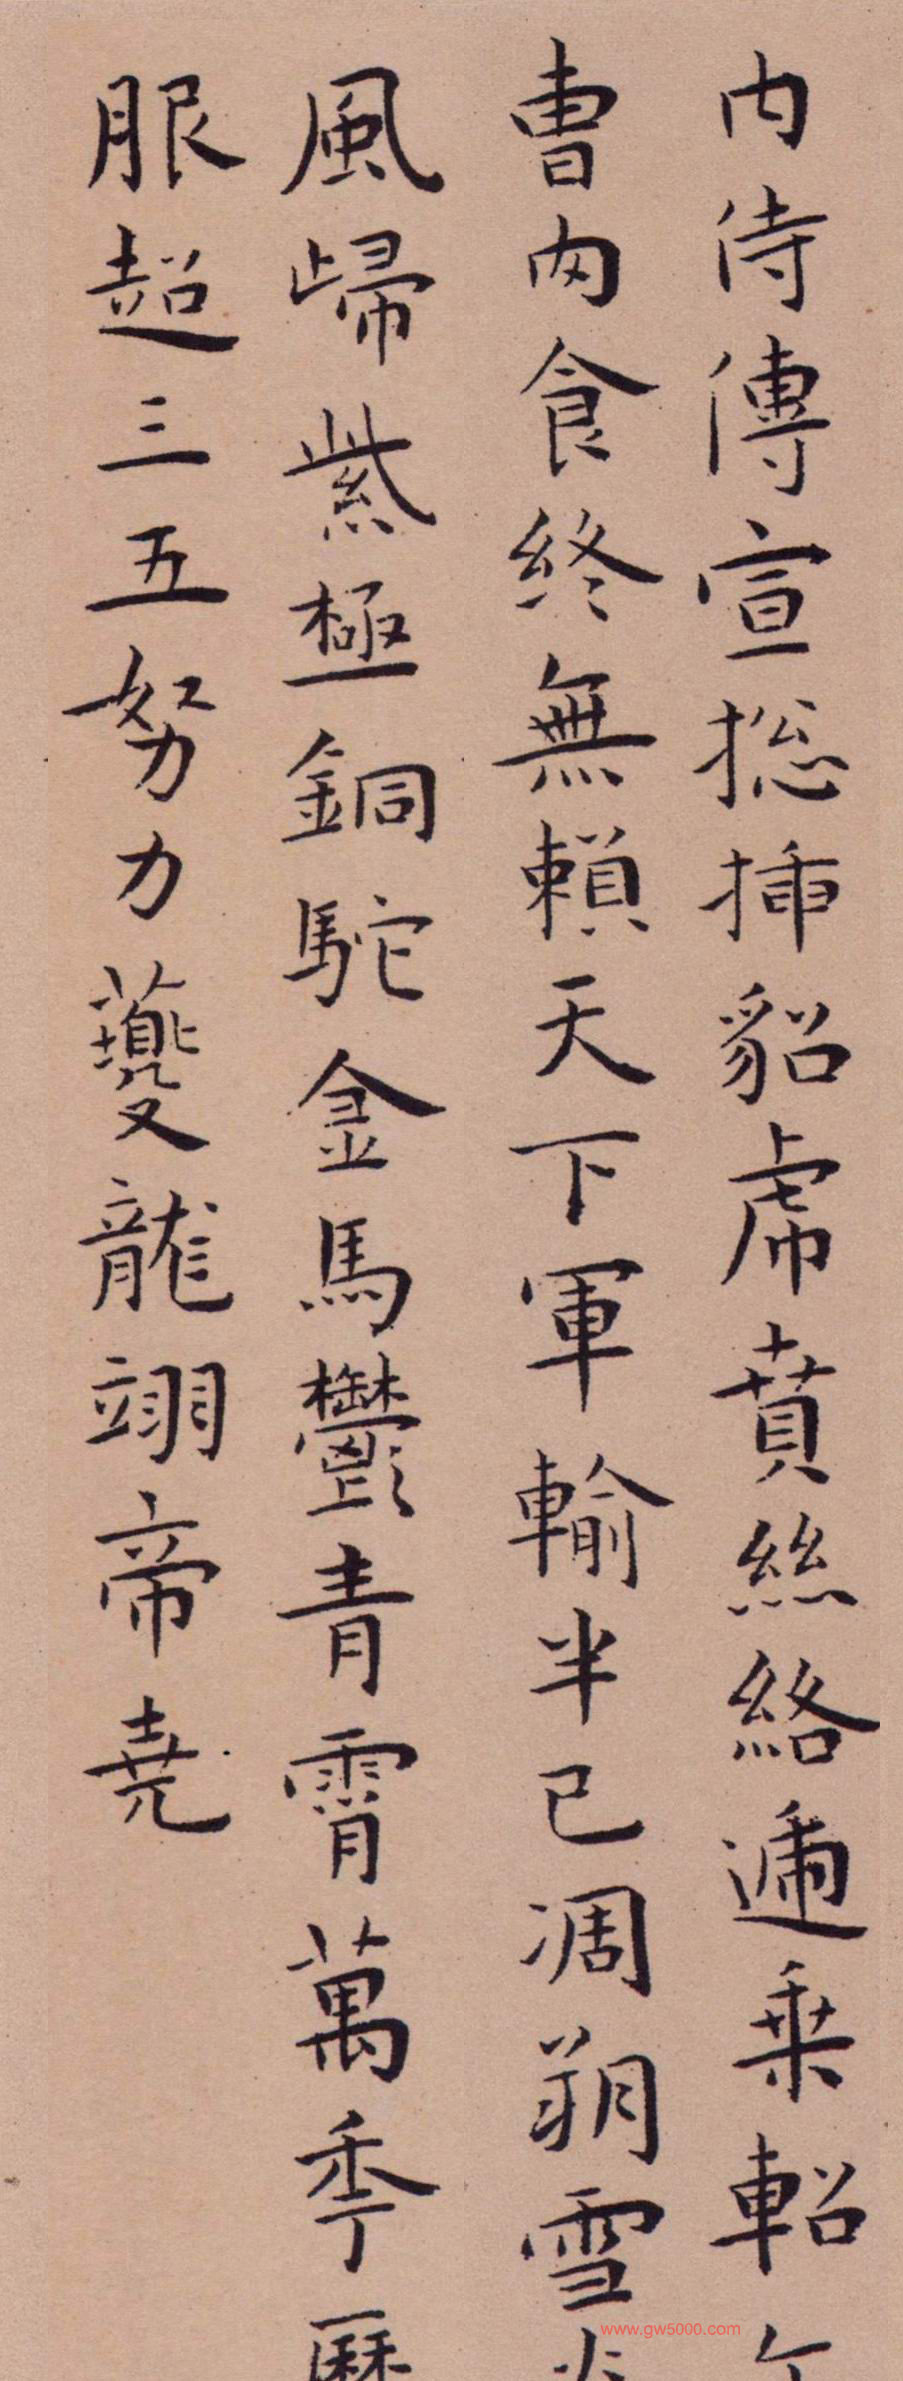 内侍傳宣捴揷貂虎賁絲絡遞乗軺
曹内食終無賴天下軍輸半已凋朔雪
風歸紫極銅駝金馬鬱青霄萬秊歷
服超三五努力夔龍翊帝堯
www.gw5000.com